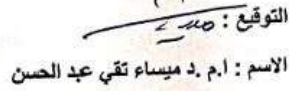 التوقيع :
الاسم : ا.م.د ميساء تقي عبد الحسن